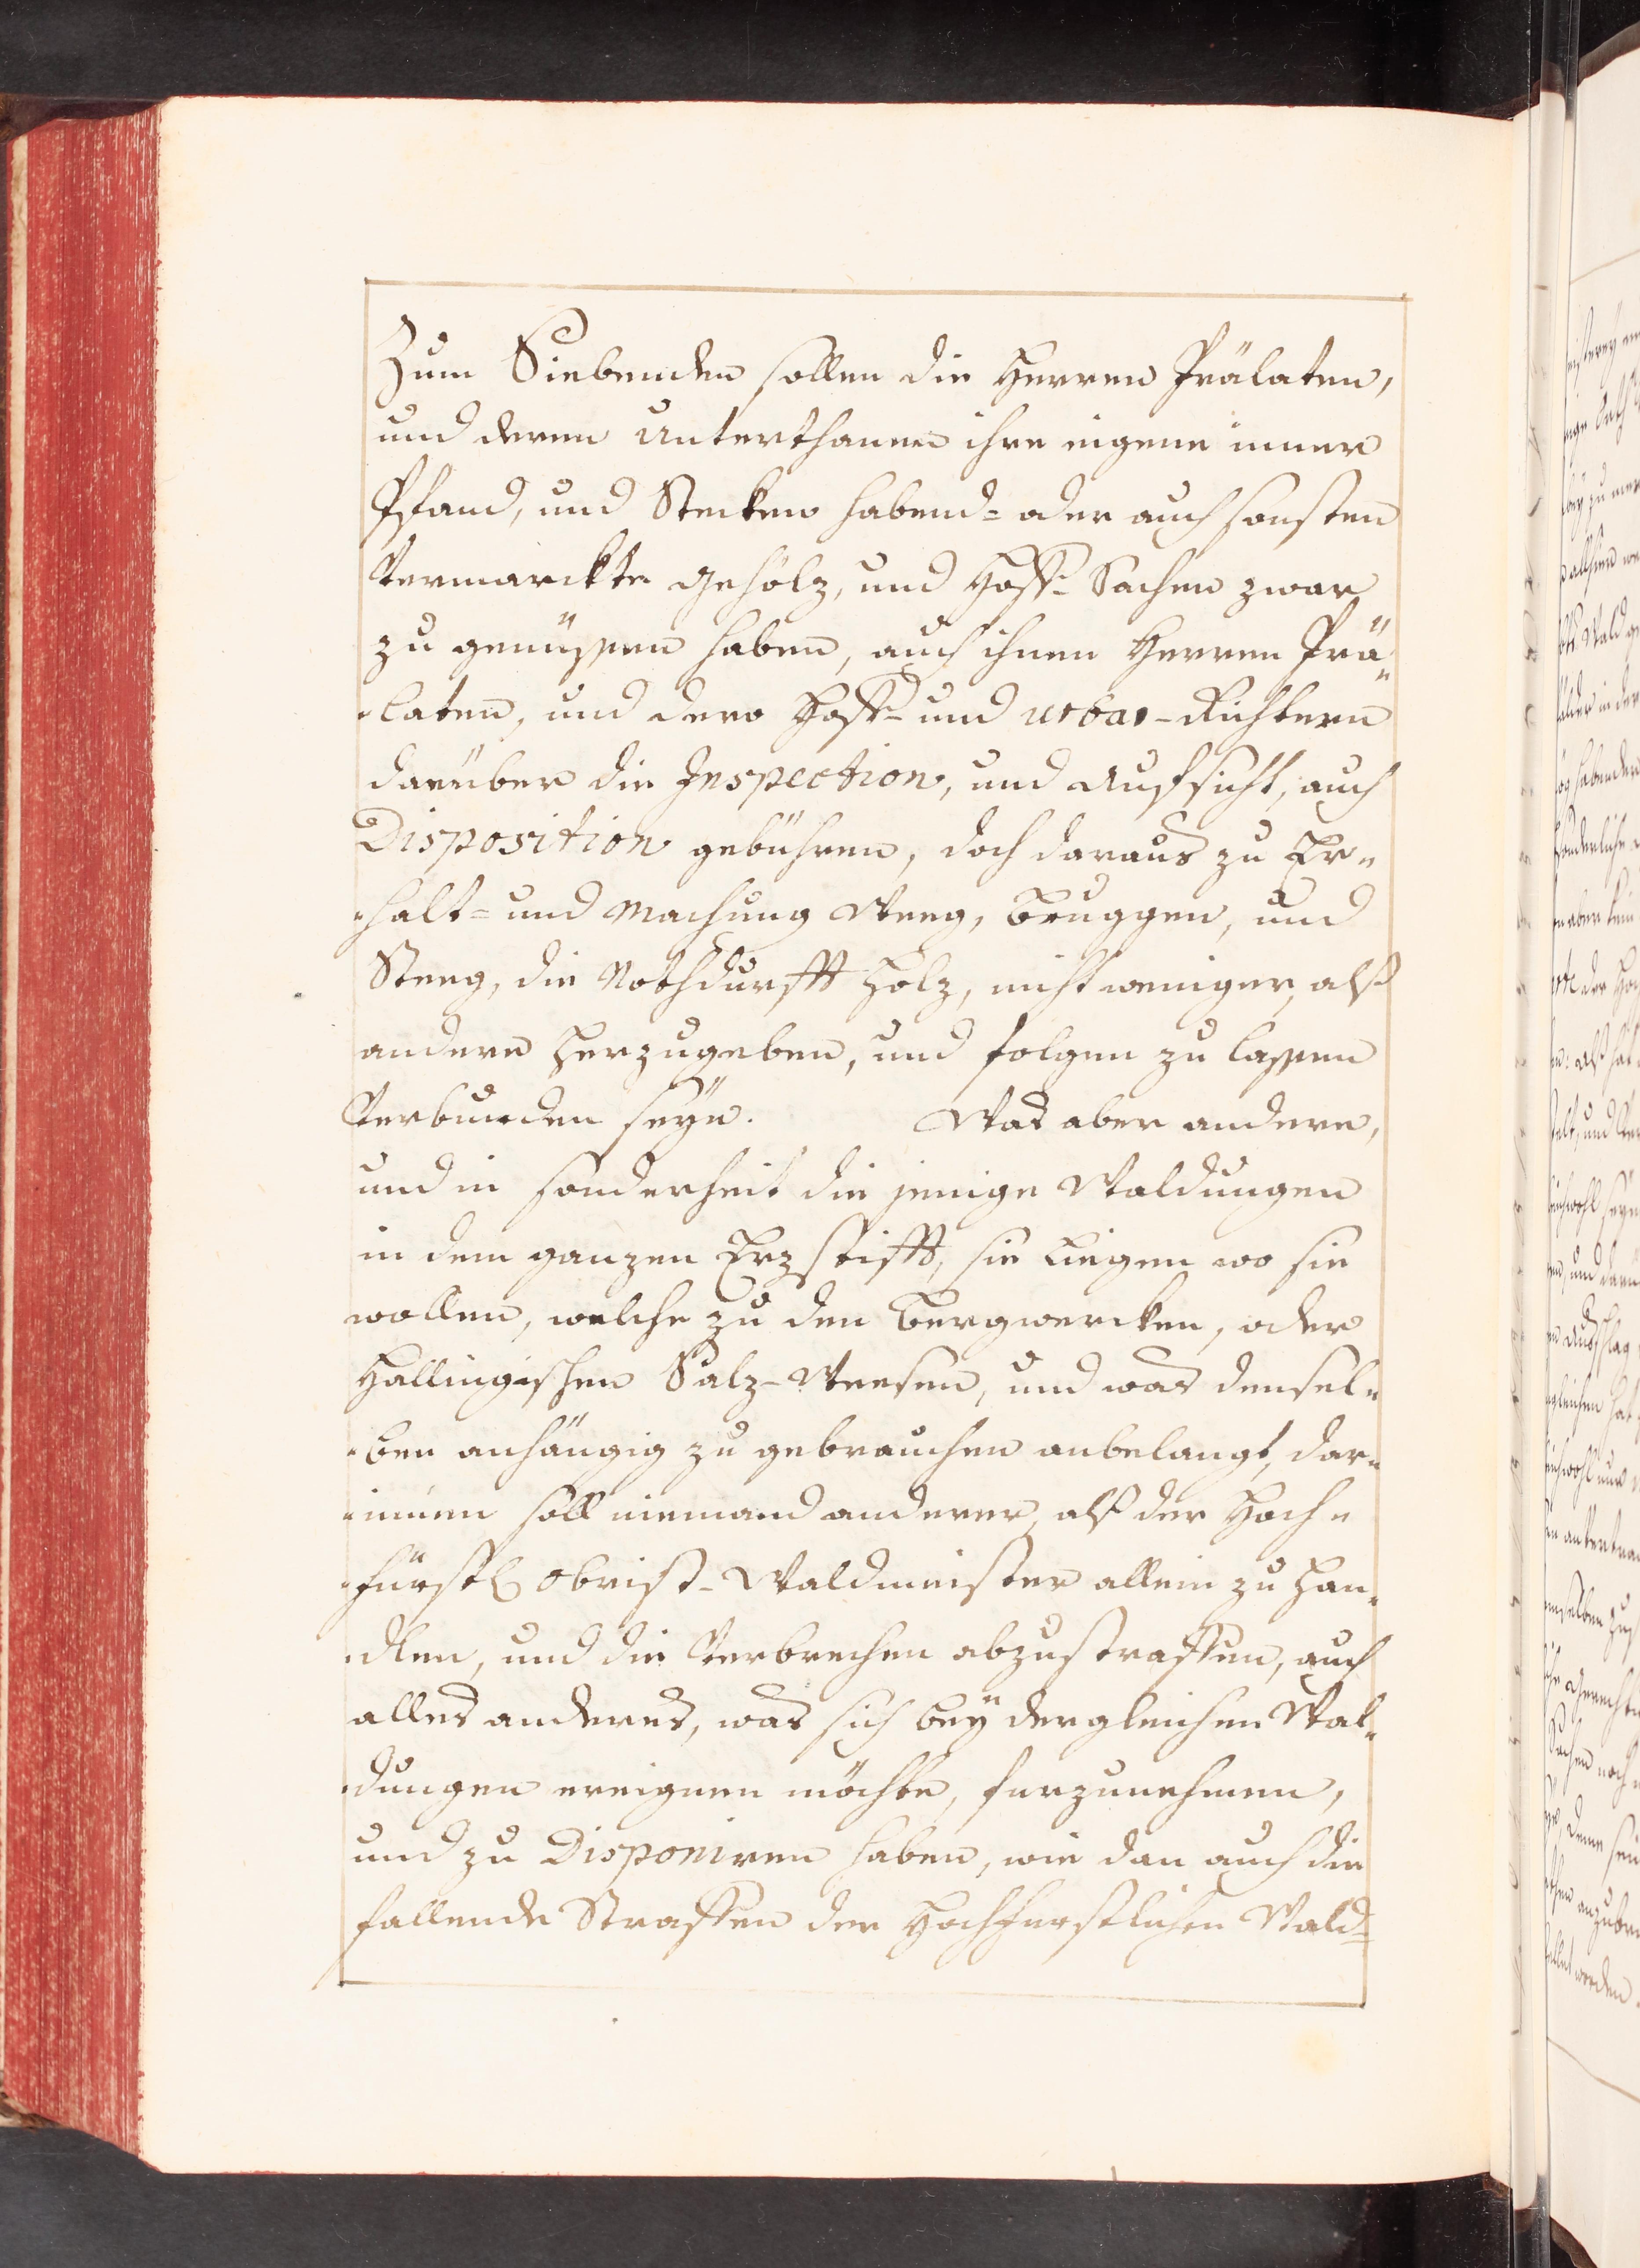 Zum Siebenden sollen die Herren Prälaten,
und deren Unterthanen ihre eigene inner
Pfand, und Stecken habend- oder auch sonsten
Vermarckte gehölz, und Hoff-Sachen zwar
zu genüssen haben, auch ihnen Herren Prä-
laten, und dero Hoff- und urbar-Richtern
darüber die Inspection, und Aufsicht, auch
Disposition gebühren, doch daraus zu Er-
halt- und machung Weeg, Bruggen, und
Steeg, die Nothdurfft Holz, nicht weniger, alß
andere herzugeben, und folgen zu lassen
Verbunden seÿn. Was aber andere,
und in sonderheit die jenige Waldungen
in dem ganzen Erzstifft, sie liegen wo sie
wollen, welche zu den Bergwercken, oder
Hallingischen Salz-Weesen, und was densel-
ben anhängig zu gebrauchen anbelangt, dar-
innen soll niemand anderer, alß der Hoch-
fürstl. Obrist-Waldmeister allein zu han-
dlen, und die Verbrechen abzustraffen, auch
alles anderes, was sich beÿ dergleichen Wal-
dungen ereignen möchte, furzunehmen,
und zu Disponiren haben, wie dan auch die
fallende Straffen der Hochfürstlichen Wald-